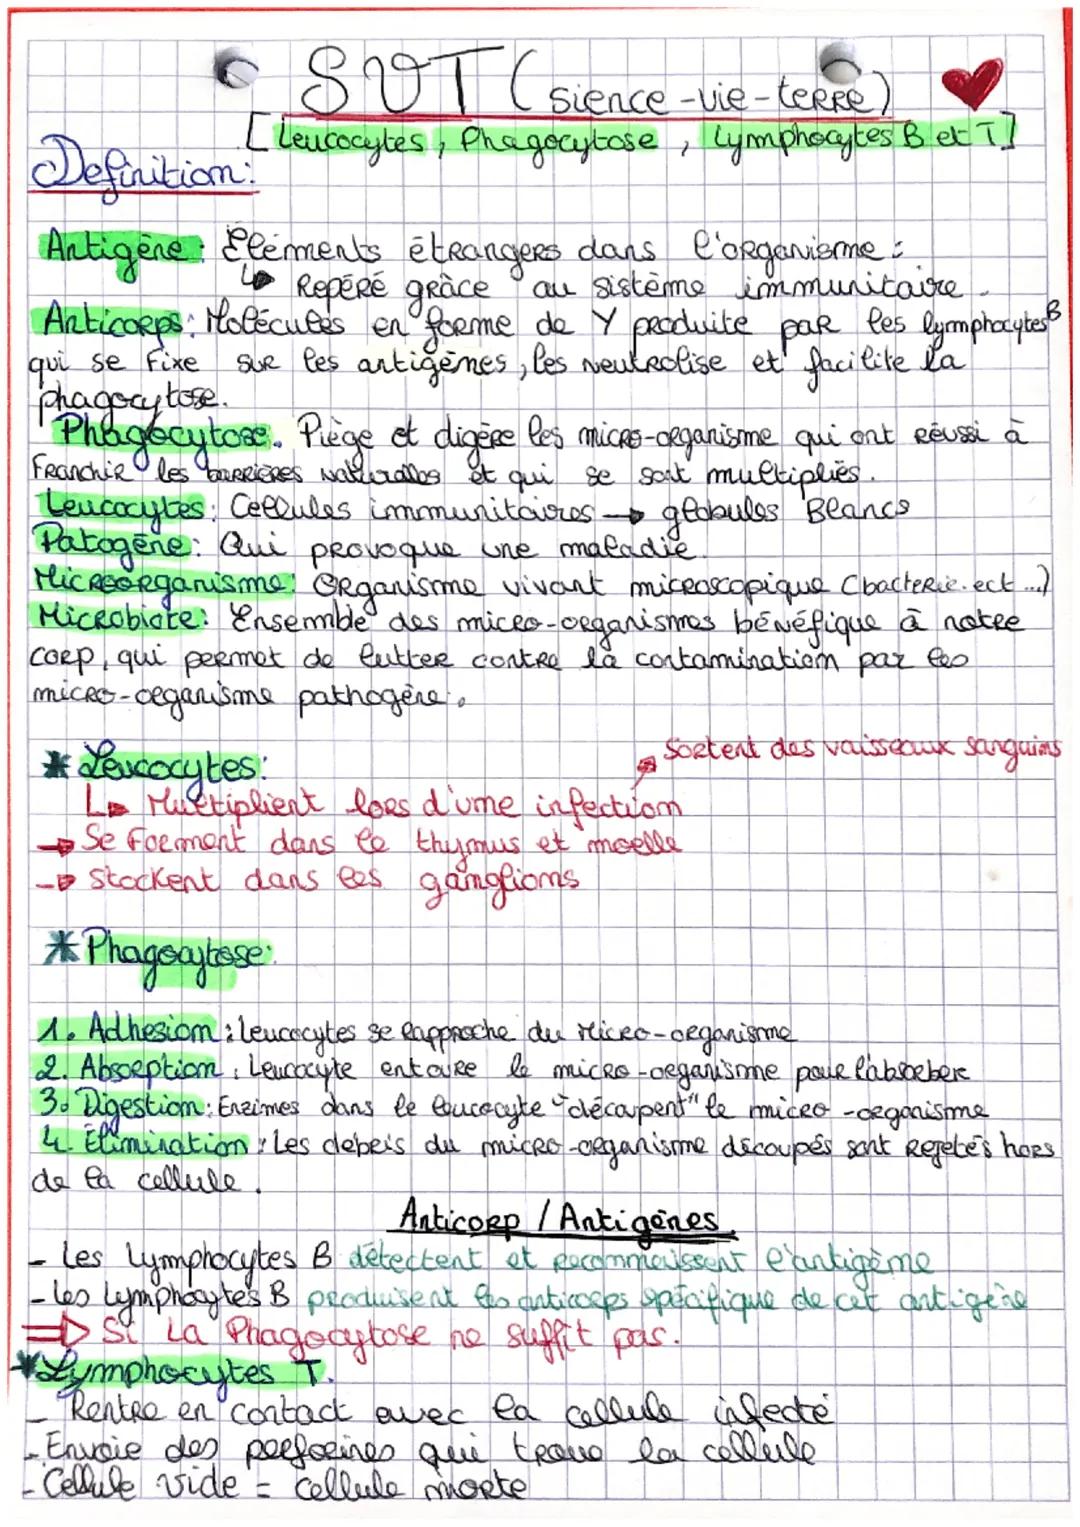 SVT (sience-vie-terre)
[Leucocytes, Phagocytose, Lymphocytes B et T]
Definition:
Antigène: Eléments étrangers dans l'organisme:
↳ Repéré grâce au sistème immunitaire.
Anticorps: Molécules en forme de Y produite par les lymphocytes B
qui se fixe sur les antigènes, les neutralise et facilite la
phagocytose.
Phagocytose. Piège et digère les micro-organisme qui ont réussi à
franchir les barrières naturelles et qui se sont multipliés.
Leucocytes: Cellules immunitaires → globules Blancs
Patogène: Qui provoque une maladie.
Microorganisme: Organisme vivant microscopique (bacterie. ect...)
Microbiote: Ensemble des micro-organismes bénéfique à notre
corp, qui permet de lutter contre la contamination par les
micro-organisme pathogène.
* Leucocytes:
→ Sortent des vaisseaux sanguins
↳ Multiplient lors d'une infection
→ Se forment dans le thymus et moelle
→ stockent dans les ganglions
* Phagocytose:
1. Adhesion: Leucocytes se rapproche du micro-organisme
2. Absorption: Leucocyte entoure le micro-organisme pour l'absorber
3. Digestion: Enzimes dans le leucocyte "découpent" le micro-organisme
4. Elimination: Les debris du micro-organisme découpés sont rejetés hors
de la cellule.
Anticorp / Antigènes.
- Les lymphocytes B détectent et reconnaissent l'antigène
- les lymphocytes B produisent les anticorps spécifique de cet antigène
⇒ Si La Phagocytose ne suffit pas.
* Lymphocytes T.
- Rentre en contact avec la cellule infecté
- Envoie des perforines qui troue la cellule
- Cellule vide = cellule morte